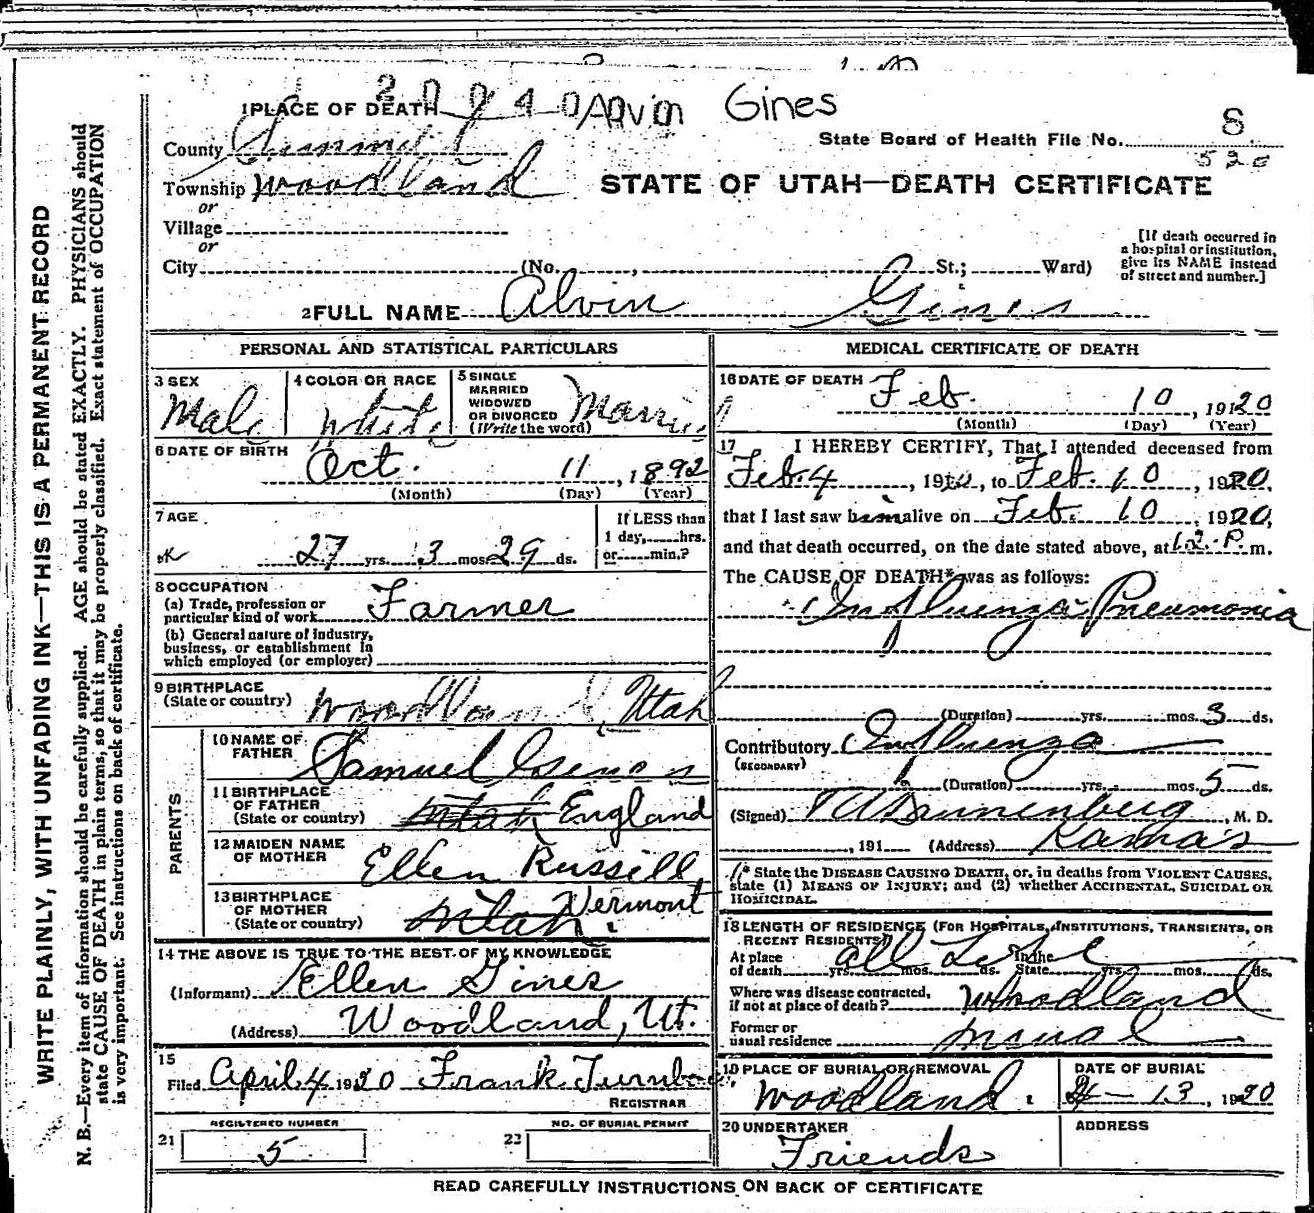 2 0 9 4 0 Alvin Gines
1 PLACE OF DEATH
State Board of Health File No. 8
520
County Summit
Township Woodland
STATE OF UTAH—DEATH CERTIFICATE
or
Village
or
City (No. , St.; Ward)
[If death occurred in a hospital or institution, give its NAME instead of street and number.]
2 FULL NAME Alvin Gines
WRITE PLAINLY, WITH UNFADING INK—THIS IS A PERMANENT RECORD
N. B.—Every item of information should be carefully supplied. AGE should be stated EXACTLY. PHYSICIANS should
state CAUSE OF DEATH in plain terms, so that it may be properly classified. Exact statement of OCCUPATION
is very important. See instructions on back of certificate.
PERSONAL AND STATISTICAL PARTICULARS
3 SEX Male
4 COLOR OR RACE White
5 SINGLE MARRIED WIDOWED OR DIVORCED (Write the word) Married
6 DATE OF BIRTH Oct. 11, 1892
(Month) (Day) (Year)
7 AGE
27 yrs. 3 mos. 29 ds.
If LESS than 1 day, hrs. or min.?
8 OCCUPATION
(a) Trade, profession or particular kind of work Farmer
(b) General nature of industry, business, or establishment in which employed (or employer)
9 BIRTHPLACE (State or country) Woodland, Utah
PARENTS
10 NAME OF FATHER Samuel Gines
11 BIRTHPLACE OF FATHER (State or country) Utah England
12 MAIDEN NAME OF MOTHER Ellen Russill
13 BIRTHPLACE OF MOTHER (State or country) Utah Vermont
14 THE ABOVE IS TRUE TO THE BEST OF MY KNOWLEDGE
(Informant) Ellen Gines
(Address) Woodland, Ut.
15
Filed April 4 1920 Frank Turnbow
REGISTRAR
21 REGISTERED NUMBER 5
22 NO. OF BURIAL PERMIT
MEDICAL CERTIFICATE OF DEATH
16 DATE OF DEATH Feb. 10, 1920
(Month) (Day) (Year)
17 I HEREBY CERTIFY, That I attended deceased from
Feb. 4, 1920, to Feb. 10, 1920,
that I last saw him alive on Feb. 10, 1920,
and that death occurred, on the date stated above, at 12.P.m.
The CAUSE OF DEATH* was as follows:
Influenza Pneumonia
(Duration) yrs. mos. 3 ds.
Contributory Influenza
(SECONDARY)
(Duration) yrs. mos. 5 ds.
(Signed) , M. D.
, 191 (Address) Kamas
* State the DISEASE CAUSING DEATH, or, in deaths from VIOLENT CAUSES, state (1) MEANS OF INJURY; and (2) whether ACCIDENTAL, SUICIDAL OR HOMICIDAL.
18 LENGTH OF RESIDENCE (FOR HOSPITALS, INSTITUTIONS, TRANSIENTS, OR RECENT RESIDENTS)
At place of death yrs. mos. ds. In the State yrs. mos. ds. all Life
Where was disease contracted, if not at place of death? Woodland
Former or usual residence
19 PLACE OF BURIAL OR REMOVAL Woodland
DATE OF BURIAL 2-13, 1920
20 UNDERTAKER Friends
ADDRESS
READ CAREFULLY INSTRUCTIONS ON BACK OF CERTIFICATE